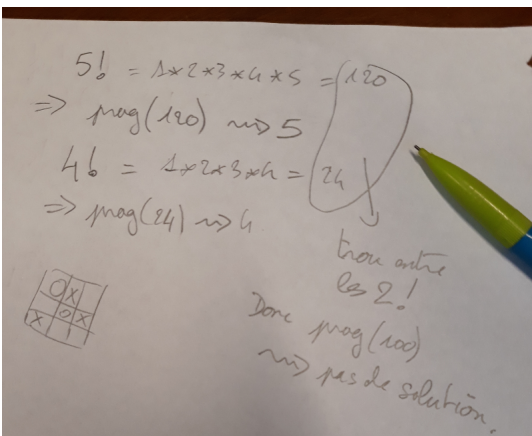 5! = 1*2*3*4*5 = 120
=> prog(120) ~~> 5
4! = 1*2*3*4 = 24
=> prog(24) ~> 4
trou entre
les 2!
Donc prog(100)
~~> pas de solution.
O X
O X
X